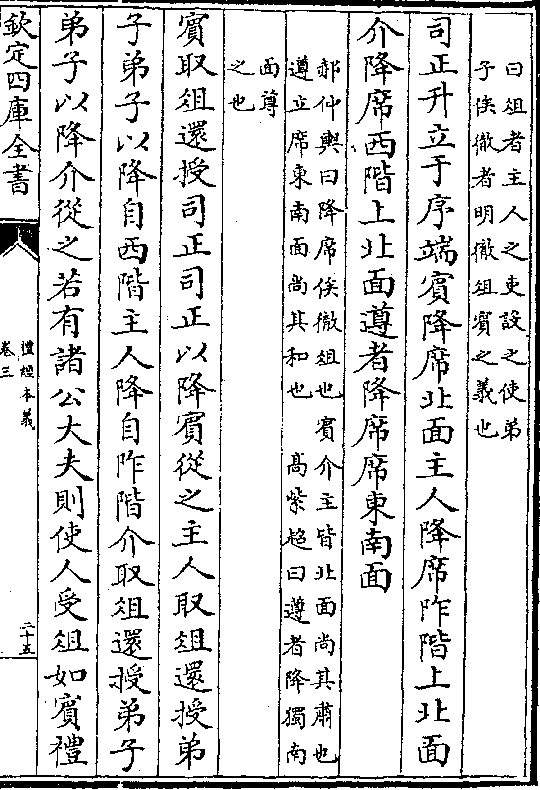 曰俎者主人之吏設之使弟
子俟徹者明徹俎賓之義也
司正升立于序端賓降席北面主人降席阼階上北面
介降席西階上北面遵者降席席東南面
郝仲輿曰降席俟徹俎也 賓介主皆北面尚其肅也
遵立席東南面尚其和也 高紫超曰遵者降獨南
面尊
之也
賓取俎還授司正司正以降賓從之主人取俎還授弟
子弟子以降自西階主人降自阼階介取俎還授弟子
弟子以降介從之若有諸公大夫則使人受俎如賓禮
欽定四庫全書
禮經本義
卷三
二十五